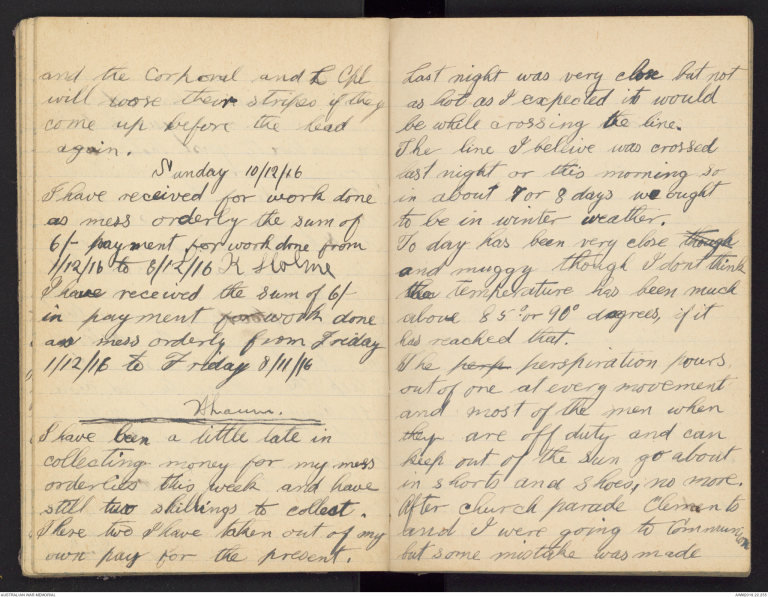 and the Corporal and L Cpl
will wose their stripes if they
come up before the head
again.
Sunday 10/12/16
I have received for work done
as mess orderly the sum of
6/- payment for work done from
1/12/16 to 8/12/16 K
I have received the sum of 6/-
in payment for work done
as mess orderly from Friday
1/12/16 to Friday 8/11/16
I have been a little late in
collecting money for my mess
orderlies this week and have
still two shillings to collect.
These two I have taken out of my
own pay for the present.
Last night was very close but not
as hot as I expected it would
be while crossing the line.
The line I beleive was crossed
last night or this morning so
in about 7 or 8 days we ought
to be in winter weather.
To day has been very close though
and muggy though I dont think
the temperature has been much
above 85° or 90° degrees, if it
has reached that.
The persp perspiration pours
out of one at every movement
and most of the men when
they are off duty and can
keep out of the sun go about
in shorts and shoes, no more.
After church parade Clements
and I were going to Communion
but some mistake was made
AUSTRALIAN WAR MEMORIAL